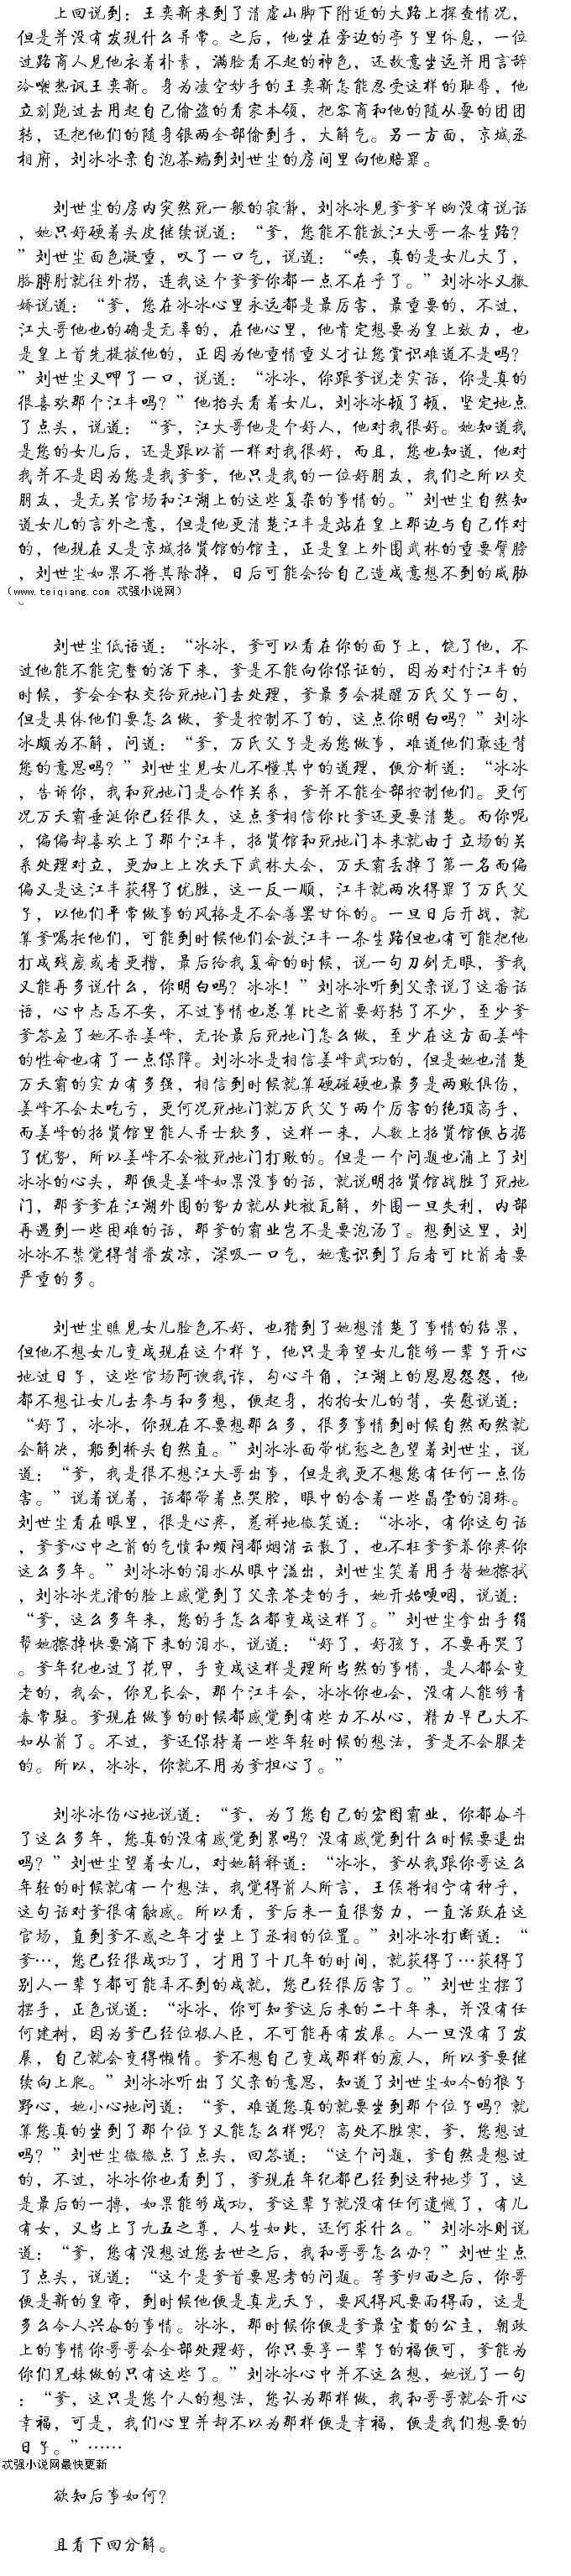 上回说到：王奕新来到了清虚山脚下附近的大路上探查情况，
但是并没有发现什么异常。之后，他坐在旁边的亭子里休息，一位
过路商人见他衣着朴素，满脸看不起的神色，还故意坐远并用言辞
冷嘲热讽王奕新。身为凌空妙手的王奕新怎能忍受这样的耻辱，他
立刻跑过去用起自己偷盗的看家本领，把客商和他的随从耍的团团
转，还把他们的随身银两全部偷到手，大解气。另一方面，京城丞
相府，刘冰冰亲自泡茶端到刘世尘的房间里向他赔罪。
刘世尘的房内突然死一般的寂静，刘冰冰见爹爹早晌没有说话
，她只好硬着头皮继续说道：“爹，您能不能放江大哥一条生路？
”刘世尘面色凝重，叹了一口气，说道：“唉，真的是女儿大了，
胳膊肘就往外拐，连我这个爹爹你都一点不在乎了。”刘冰冰又撒
娇说道：“爹，您在冰冰心里永远都是最厉害，最重要的，不过，
江大哥他也的确是无辜的，在他心里，他肯定想要为皇上效力，也
是皇上首先提拔他的，正因为他重情重义才让您赏识难道不是吗？
”刘世尘又呷了一口，说道：“冰冰，你跟爹说老实话，你是真的
很喜欢那个江丰吗？”他抬头看着女儿，刘冰冰顿了顿，坚定地点
了点头，说道：“爹，江大哥他是个好人，他对我很好。她知道我
是您的女儿后，还是跟以前一样对我很好，而且，您也知道，他对
我并不是因为您是我爹爹，他只是我的一位好朋友，我们之所以交
朋友，是无关官场和江湖上的这些复杂的事情的。”刘世尘自然知
道女儿的言外之意，但是他更清楚江丰是站在皇上那边与自己作对
的，他现在又是京城招贤馆的馆主，正是皇上外围武林的重要臂膀
，刘世尘如果不将其除掉，日后可能会给自己造成意想不到的威胁
（www.teiqiang.com 忒强小说网）
。
刘世尘低语道：“冰冰，爹可以看在你的面子上，饶了他，不
过他能不能完整的活下来，爹是不能向你保证的，因为对付江丰的
时候，爹会全权交给死地门去处理，爹最多会提醒万氏父子一句，
但是具体他们要怎么做，爹是控制不了的，这点你明白吗？”刘冰
冰颇为不解，问道：“爹，万氏父子是为您做事，难道他们敢违背
您的意思吗？”刘世尘见女儿不懂其中的道理，便分析道：“冰冰
，告诉你，我和死地门是合作关系，爹并不能全部控制他们。更何
况万天霸垂涎你已经很久，这点爹相信你比爹还更要清楚。而你呢
，偏偏却喜欢上了那个江丰，招贤馆和死地门本来就由于立场的关
系处理对立，更加上上次天下武林大会，万天霸丢掉了第一名而偏
偏又是这江丰获得了优胜，这一反一顺，江丰就两次得罪了万氏父
子，以他们平常做事的风格是不会善罢甘休的。一旦日后开战，就
算爹嘱托他们，可能到时候他们会放江丰一条生路但也有可能把他
打成残废或者更糟，最后给我复命的时候，说一句刀剑无眼，爹我
又能再多说什么，你明白吗？冰冰！”刘冰冰听到父亲说了这番话
语，心中忐忑不安，不过事情也总算比之前要好转了不少，至少爹
爹答应了她不杀姜峰，无论最后死地门怎么做，至少在这方面姜峰
的性命也有了一点保障。刘冰冰是相信姜峰武功的，但是她也清楚
万天霸的实力有多强，相信到时候就算硬碰硬也最多是两败俱伤，
姜峰不会太吃亏，更何况死地门就万氏父子两个厉害的绝顶高手，
而姜峰的招贤馆里能人异士较多，这样一来，人数上招贤馆便占据
了优势，所以姜峰不会被死地门打败的。但是一个问题也涌上了刘
冰冰的心头，那便是姜峰如果没事的话，就说明招贤馆战胜了死地
门，那爹爹在江湖外围的势力就从此被瓦解，外围一旦失利，内部
再遇到一些困难的话，那爹的霸业岂不是要泡汤了。想到这里，刘
冰冰不禁觉得背脊发凉，深吸一口气，她意识到了后者可比前者要
严重的多。
刘世尘瞧见女儿脸色不好，也猜到了她想清楚了事情的结果，
但他不想女儿变成现在这个样子，他只是希望女儿能够一辈子开心
地过日子，这些官场阿谀我诈，勾心斗角，江湖上的恩恩怨怨，他
都不想让女儿去参与和多想，便起身，拍拍女儿的背，安慰说道：
“好了，冰冰，你现在不要想那么多，很多事情到时候自然而然就
会解决，船到桥头自然直。”刘冰冰面带忧愁之色望着刘世尘，说
道：“爹，我是很不想江大哥出事，但是我更不想您有任何一点伤
害。”说着说着，话都带着点哭腔，眼中的含着一些晶莹的泪珠。
刘世尘看在眼里，很是心疼，慈祥地微笑道：“冰冰，有你这句话
，爹爹心中之前的气愤和烦闷都烟消云散了，也不枉爹爹养你疼你
这么多年。”刘冰冰的泪水从眼中溢出，刘世尘笑着用手替她擦拭
，刘冰冰光滑的脸上感觉到了父亲苍老的手，她开始哽咽，说道：
“爹，这么多年来，您的手怎么都变成这样了。”刘世尘拿出手绢
帮她擦掉快要滴下来的泪水，说道：“好了，好孩子，不要再哭了
。爹年纪也过了花甲，手变成这样是理所当然的事情，是人都会变
老的，我会，你兄长会，那个江丰会，冰冰你也会，没有人能够青
春常驻。爹现在做事的时候都感觉到有些力不从心，精力早已大不
如从前了。不过，爹还保持着一些年轻时候的想法，爹是不会服老
的。所以，冰冰，你就不用为爹担心了。”
刘冰冰伤心地说道：“爹，为了您自己的宏图霸业，你都奋斗
了这么多年，您真的没有感觉到累吗？没有感觉到什么时候要退出
吗？”刘世尘望着女儿，对她解释道：“冰冰，爹从我跟你哥这么
年轻的时候就有一个想法，我觉得前人所言，王侯将相宁有种乎，
这句话对爹很有触感。所以看，爹后来一直很努力，一直活跃在这
官场，直到爹不惑之年才坐上了丞相的位置。”刘冰冰打断道：“
爹…，您已经很成功了，才用了十几年的时间，就获得了…获得了
别人一辈子都可能弄不到的成就，您已经很厉害了。”刘世尘摆了
摆手，正色说道：“冰冰，你可知爹这后来的二十年来，并没有任
何建树，因为爹已经位极人臣，不可能再有发展。人一旦没有了发
展，自己就会变得懒惰。爹不想自己变成那样的废人，所以爹要继
续向上爬。”刘冰冰听出了父亲的意思，知道了刘世尘如今的狼子
野心，她小心地问道：“爹，难道您真的就要坐到那个位子吗？就
算您真的坐到了那个位子又能怎么样呢？高处不胜寒，爹，您想过
吗？”刘世尘微微点了点头，回答道：“这个问题，爹自然是想过
的，不过，冰冰你也看到了，爹现在年纪都已经到这种地步了，这
是最后的一搏，如果能够成功，爹这辈子就没有任何遗憾了，有儿
有女，又当上了九五之尊，人生如此，还何求什么。”刘冰冰则说
道：“爹，您有没想过您去世之后，我和哥哥怎么办？”刘世尘点
了点头，说道：“这个是爹首要思考的问题。等爹归西之后，你哥
便是新的皇帝，到时候他便是真龙天子，要风得风要雨得雨，这是
多么令人兴奋的事情。冰冰，那时候你便是爹最宝贵的公主，朝政
上的事情你哥哥会全部处理好，你只要享一辈子的福便可，爹能为
你们兄妹做的只有这些了。”刘冰冰心中并不这么想，她说了一句
：“爹，这只是您个人的想法，您认为那样做，我和哥哥就会开心
幸福，可是，我们心里并却不以为那样便是幸福，便是我们想要的
日子。”……
忒强小说网最快更新
欲知后事如何？
且看下回分解。